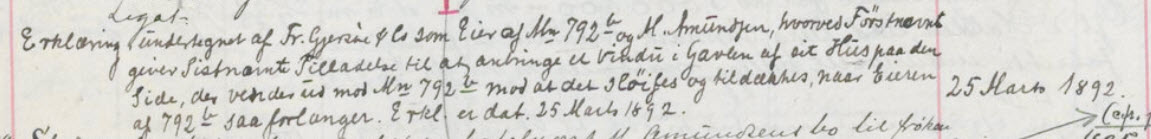 Legat.
Erklæring undertegnet af Fr. Gjersøe & Co som Eier af Mn 792b og M. Amundsen, hvorved Førstnævnt
giver Sistnævnt Tilladelse til at anbringe et Vindu i Gavlen af sit Huspaa den
Side, der vender ud mod Mn 792b mod at det sløifes og tildækkes, naar Eieren
af 792b saa forlanger. Erkl. er dat. 25 Marts 1892.
25 Marts 1892.
M. Amundsens bo til frøken